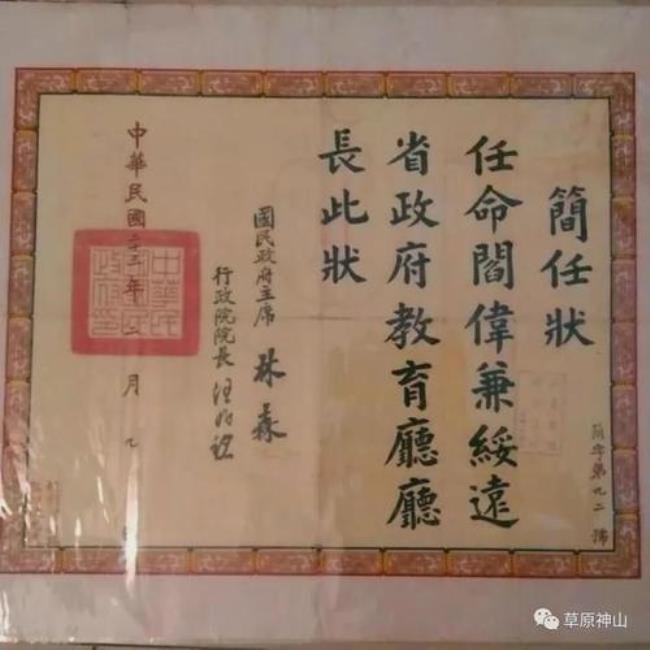 簡任狀
任命閻偉兼綏遠
省政府教育廳廳
長此狀
國民政府主席 林森
行政院院長 汪兆銘
中華民國二十三年二月九日
簡字第九二號
草原神山